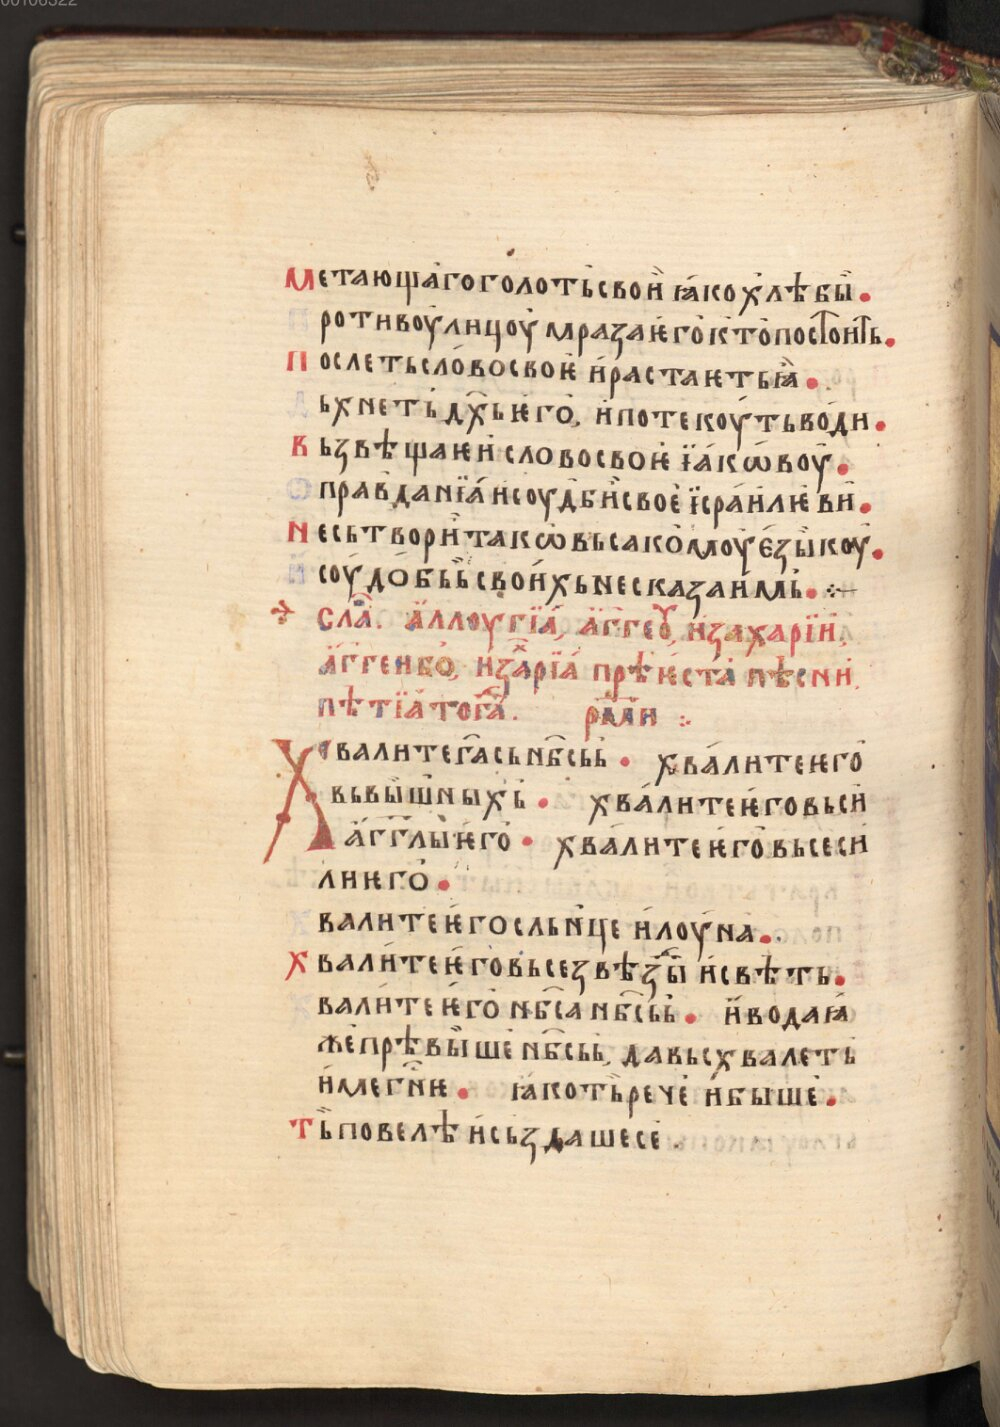 Метающаго голоть свои ꙗко хлѣбы.
ротивоу лицоу мраза ѥго кто постоить.
Послеть слово своѥ и растаѥть ꙗ.
ьхнеть дх҃ь ѥго, и потекоуть води.
Вьзвѣщаѥи слово своѥ їаковоу.
оправданїа и соудби своѥ їсраилѥви.
Не сьтвори такѡ вьсакомоу ѥзыкоу.
соудобы своихь не сказа имь.
сла҃. аллоугїа, аггеѡ, и захарїи,
аггеи бо, и захарїа прѣѥста пѣсни,
пѣтїа тога҃. рм҃и
Хвалите га҃ сь нб҃сьь. хвалите ѥго
вь вышныхь. хвалите ѥго вьси
агг҃лы ѥго. хвалите ѥго вьсе си
ли ѥго.
валите ѥго сльнце и лоуна.
Хвалите ѥго вьсе звѣзды и свѣть.
валите ѥго нб҃са нб҃сьь. и вода ꙗ
же прѣвыше нб҃сьь, да вьсхвалеть
име гн҃ѥ. ꙗко ть рече и быше.
Ть повелѣ и сьздаше се.